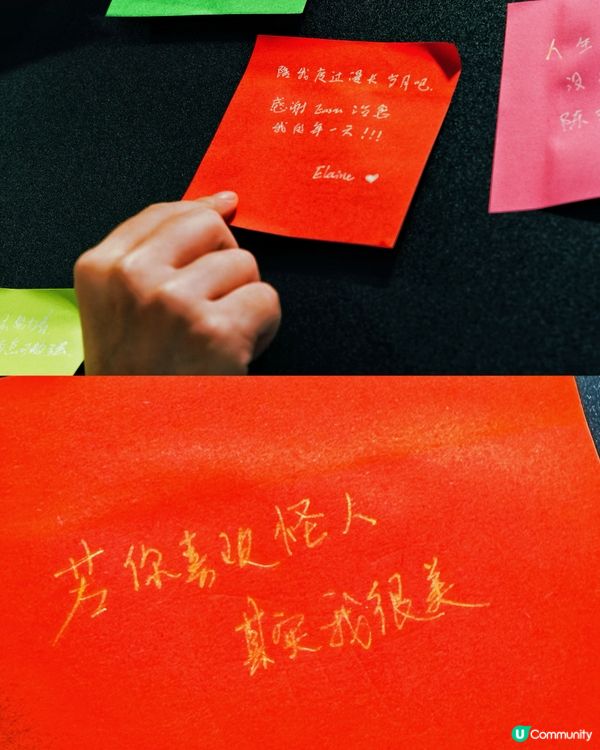 陪我度过漫长岁月吧.
感谢 Eason 治愈
我的每一天!!!
Elaine
人生
没
陈
若你喜欢怪人
其实我很美
U Community